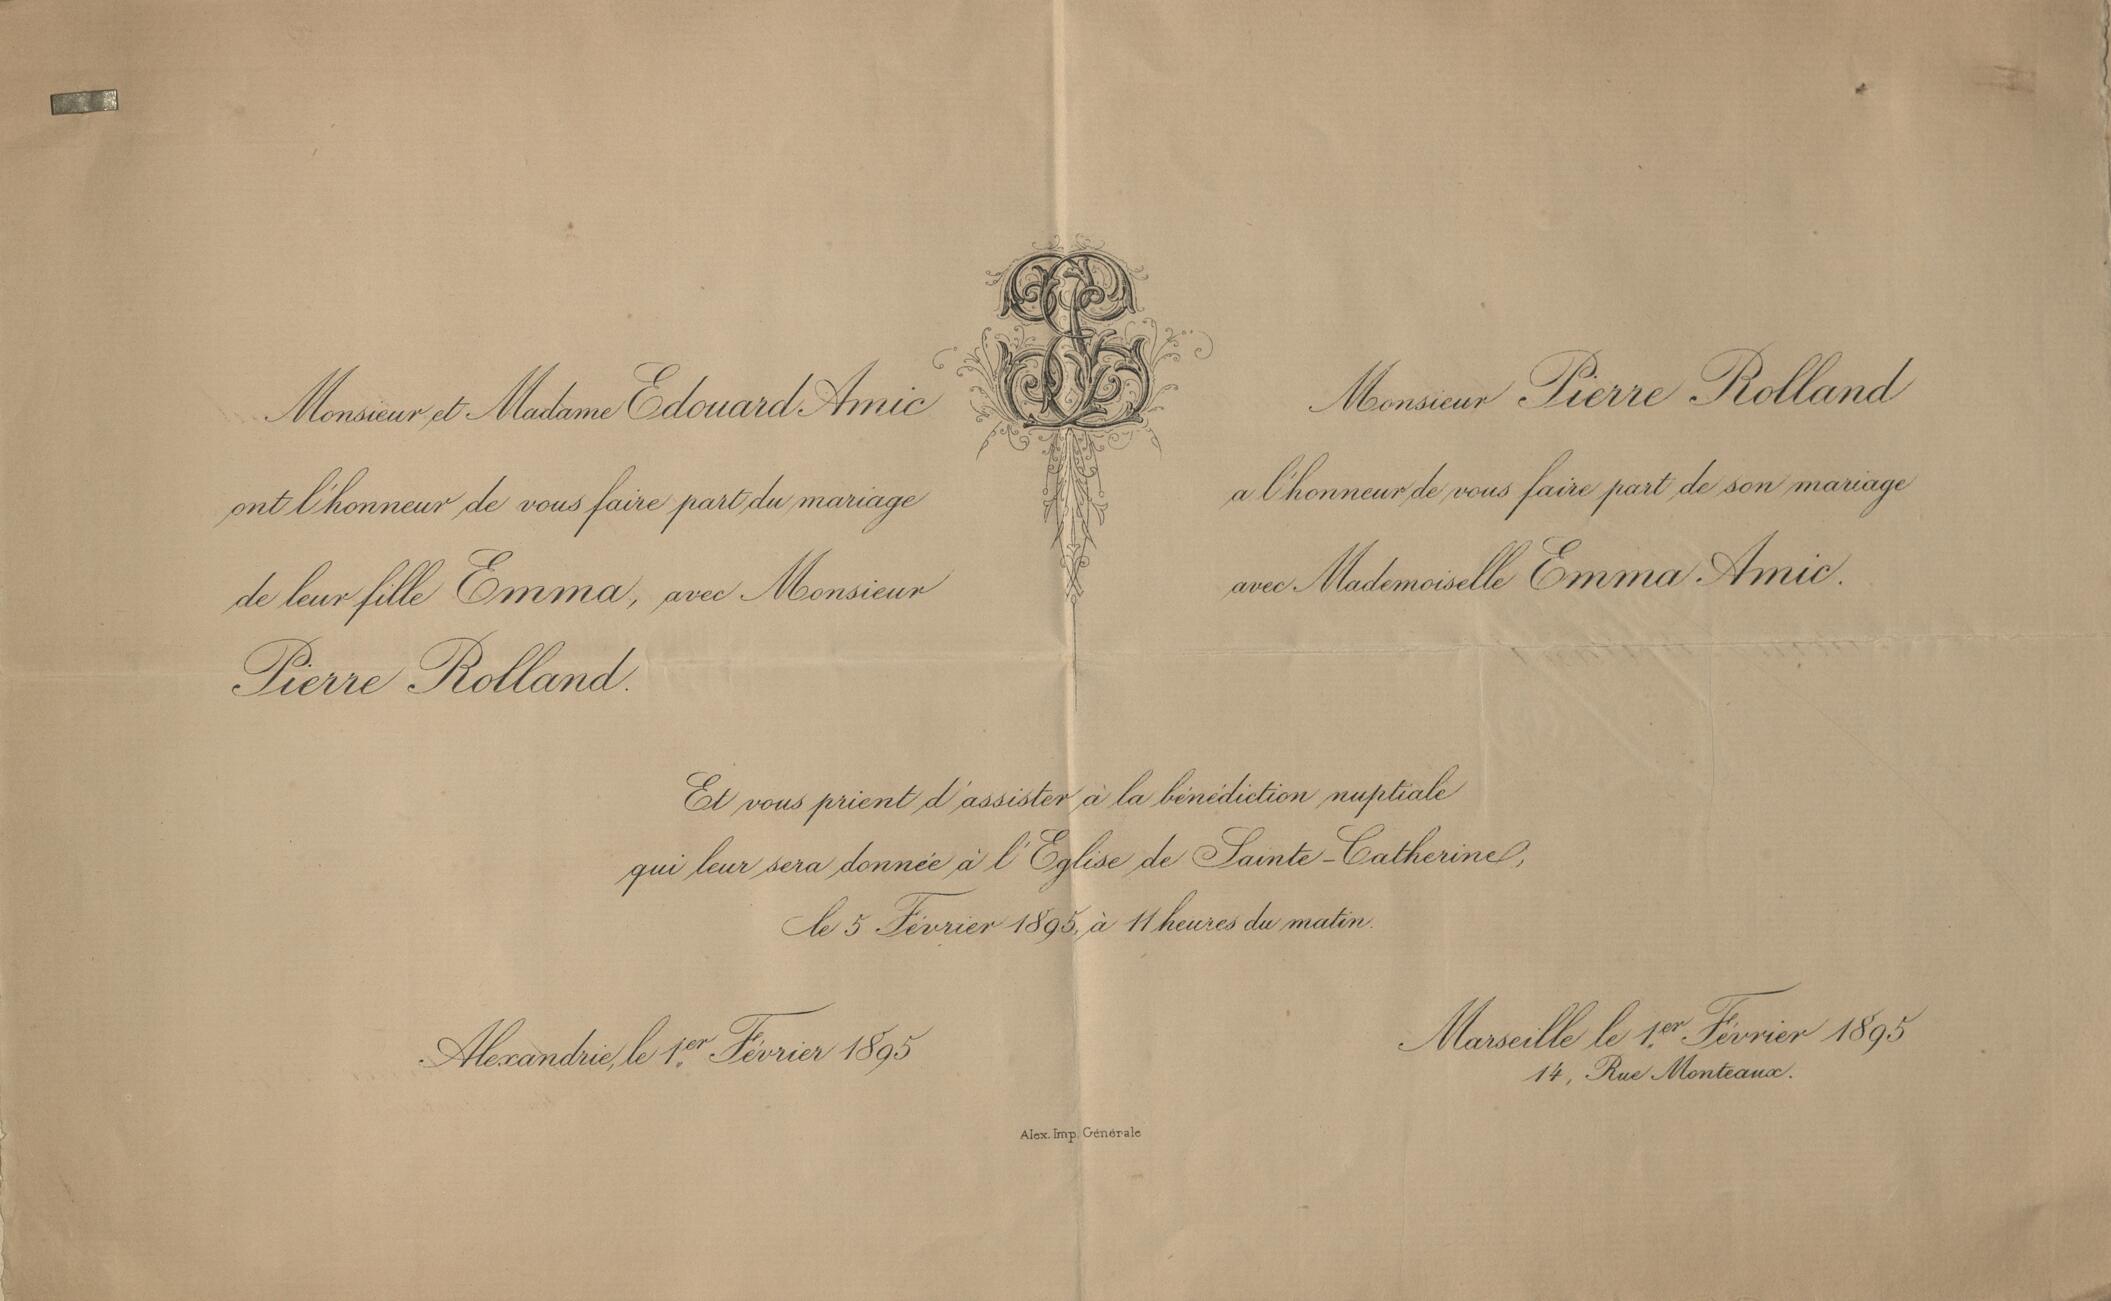 Monsieur et Madame Edouard Amic
ont l'honneur de vous faire part du mariage
de leur fille Emma, avec Monsieur
Pierre Rolland.
Monsieur Pierre Rolland
a l'honneur de vous faire part de son mariage
avec Mademoiselle Emma Amic.
Et vous prient d'assister à la bénédiction nuptiale
qui leur sera donnée à l'Eglise de Sainte-Catherine,
le 5 Février 1895, à 11 heures du matin.
Alexandrie, le 1er Février 1895
Marseille le 1er Février 1895
14, Rue Monteaux.
Alex. Imp. Générale